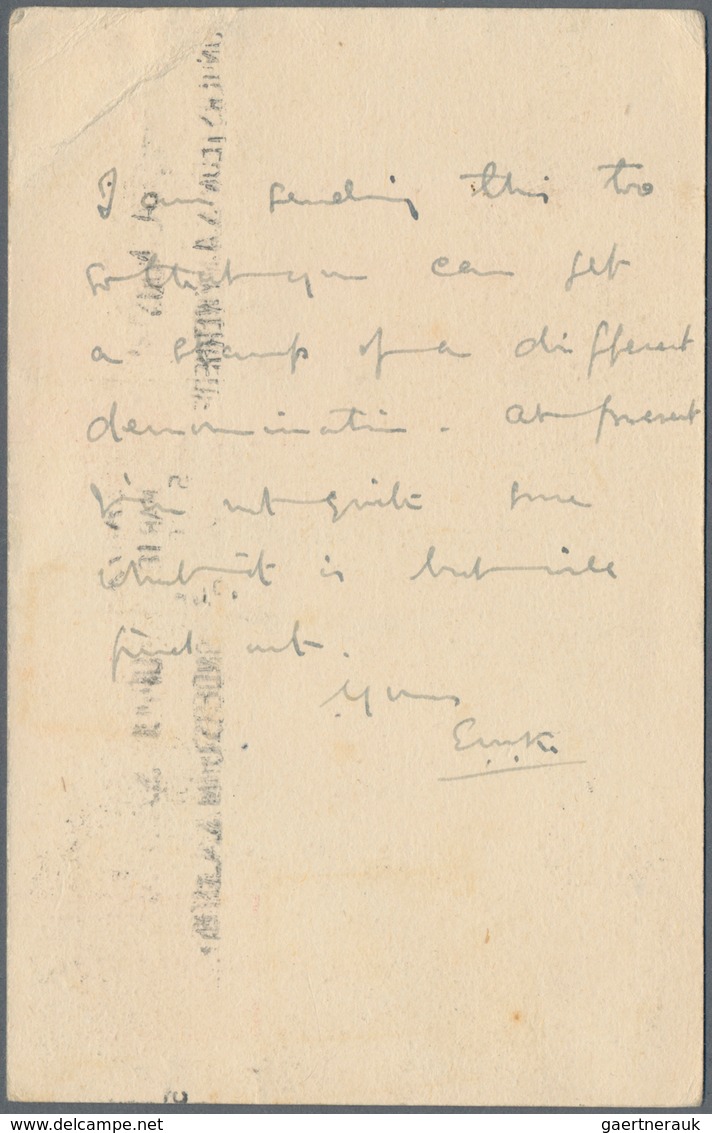 I am sending this too
so that you can get
a stamp of a different
denomination. At present
I'm not quite sure
what it is but will
find out.
Yours
E.W.K.
gaertnerauk